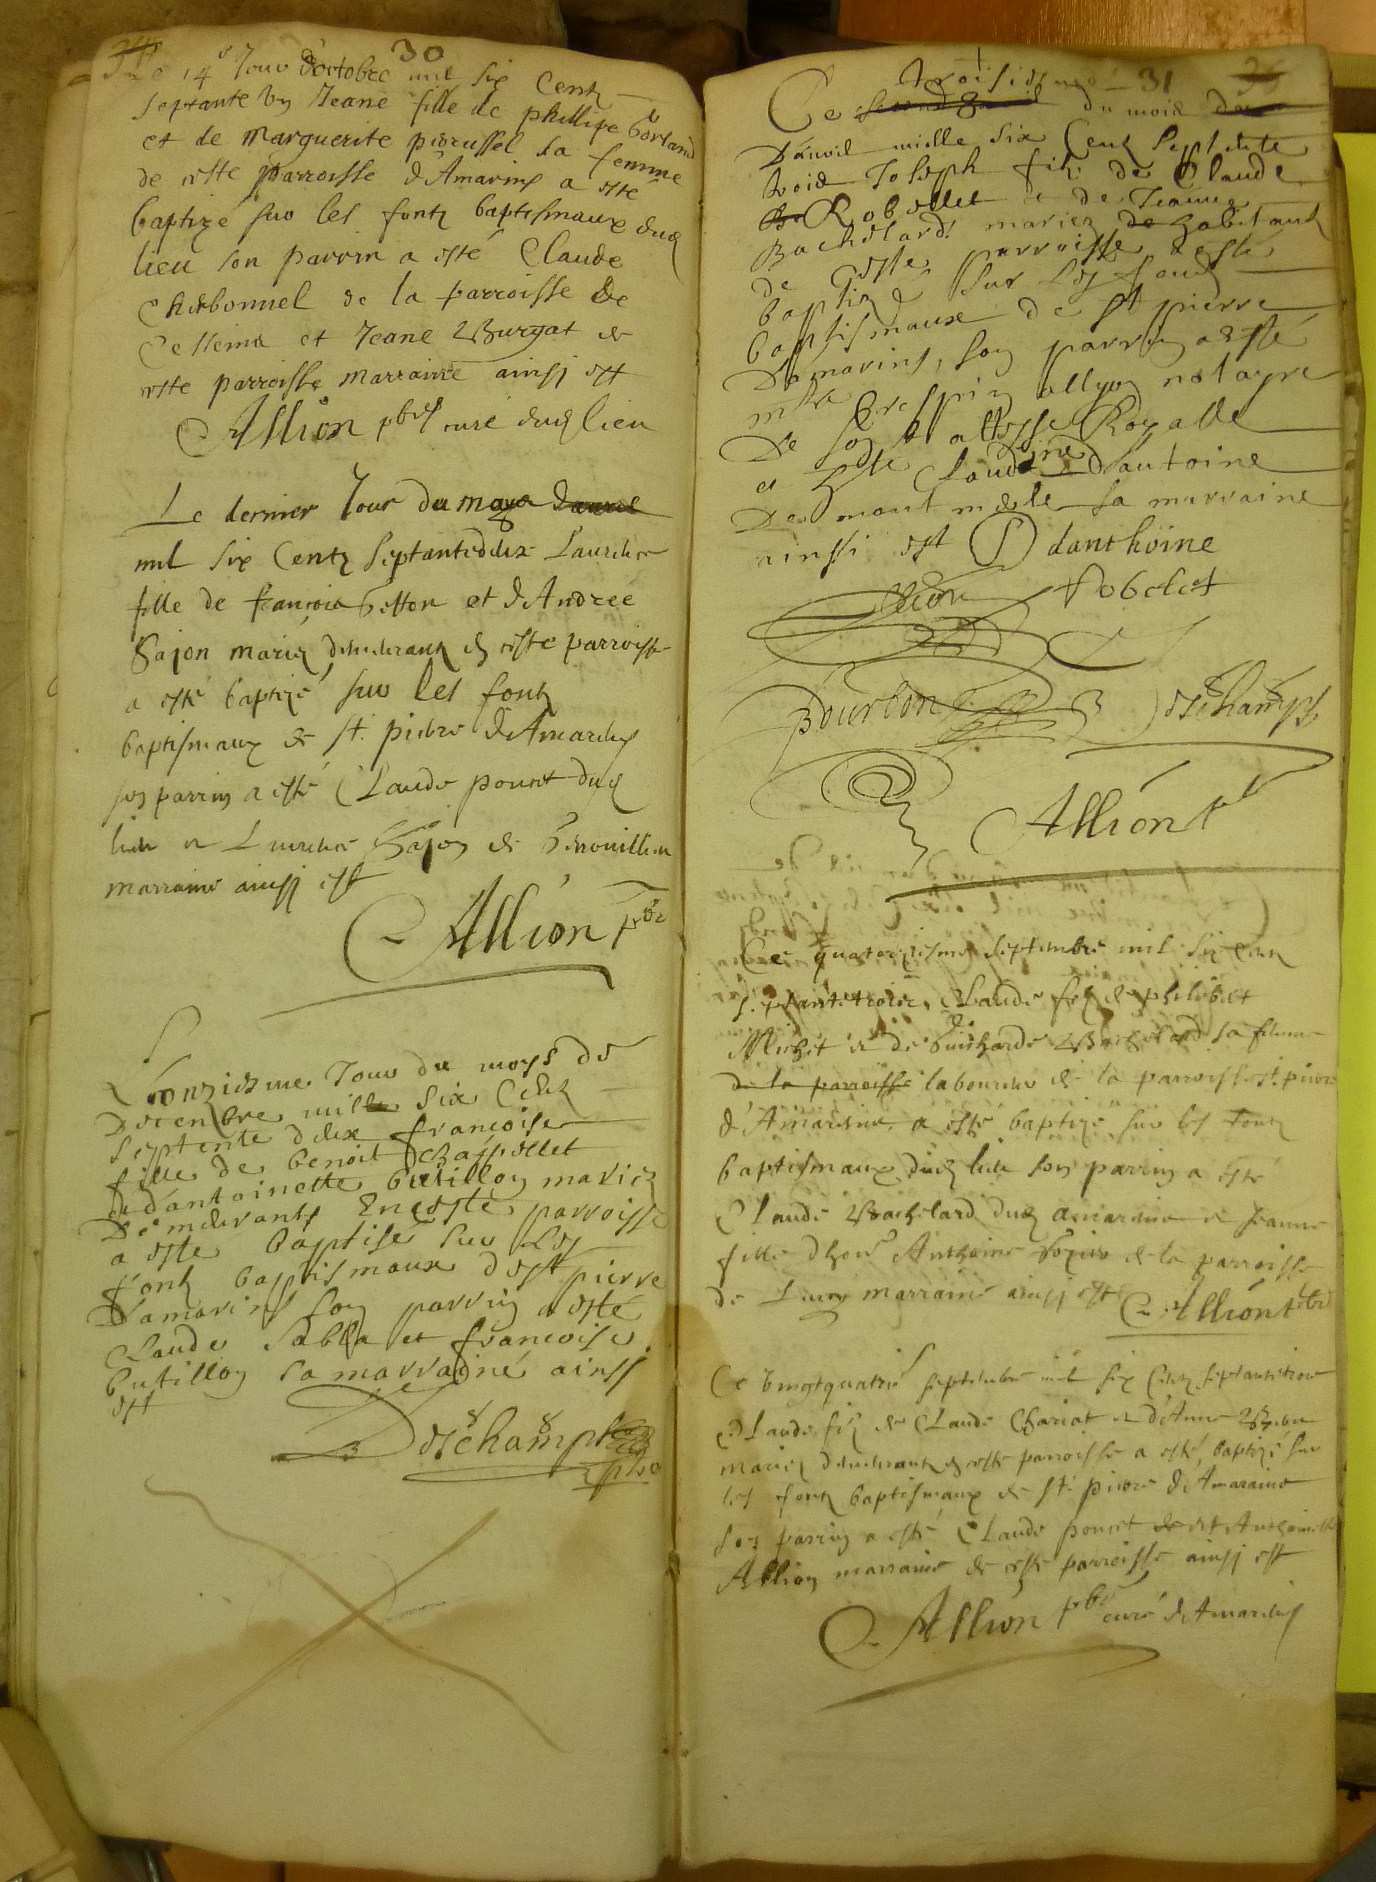 30
Le 14e Jour d'octobre mil six Centz
septante un Jeane fille de phillipe
et de Marguerite pirrussel sa femme
de ceste parroisse d'Amarins a esté
baptizé sur les fontz baptismaux dud
lieu son parrin a esté Claude
Charbonnel de la parroisse de
et Jeane Burgat de
ceste parroisse marraine ainsj est
Allion pbre curé dud lieu
Le dernier Jour du maya
mil six Centz septantedeux
fille de françois betton et d'Andrée
Gajon mariez demeurantz en ceste parroisse
a esté baptizé sur les fontz
baptismaux de st. pierre d'Amarins
son parrin a esté Claude poncet dud
lieu et Gajon de
marraine ainsj est
Allion pbre
L'onziesme Jour du moys de
Decenbre mille six Centz
septente deux françoise
fille de benoit Chappellet
et d'antoinette butillon mariez
Demeurants En ceste parroisse
a esté baptisé sur les
fontz baptismaux de st pierre
Damarins son parrin a esté
Claude Sabla et françoise
butillon sa marraine ainsj
est
Deschamps
pbre
troisiesme 31
Ce du mois
D'auvril mille six Centz septente
trois Joseph filz de Claude
Robellet et de Jeanne
Bachelard mariez habitantz
de ceste parroisse a esté
baptizé sur les fontz
baptismaux de st pierre
Damarins, son parrin a esté
mtre Crespin allyon notayre
De son altesse Royalle
et Claudine d'antoine
De montmerle sa marraine
ainssi est danthoine
Allion Robelet
Bourbon Deschamps
Allion
Ce quatorziesme septembre mil six centz
septantetrois, Claude filz de philibert
Michet et de Guicharde Bachelard sa femme
de la parroisse laboureur de la parroisse st. pierre
d'Amareins a esté baptizé sur les fontz
baptismaux dud lieu son parrin a esté
Claude Bachelard dud amareins et Jeanne
fille d'hon. Anthoine de la parroisse
de marraine ainsj est Allion pbre
Ce vingtquatrie septembre mil six Centz septantetrois
Claude filz de Claude Chariat et d'Anne
mariez demeurantz en ceste parroisse a esté baptizé sur
les fontz baptismaux de st. pierre d'Amareins
son parrin a esté Claude poncet et Anthoinette
Allion marraine de ceste parroisse ainsj est
Allion pbre curé d'Amareins